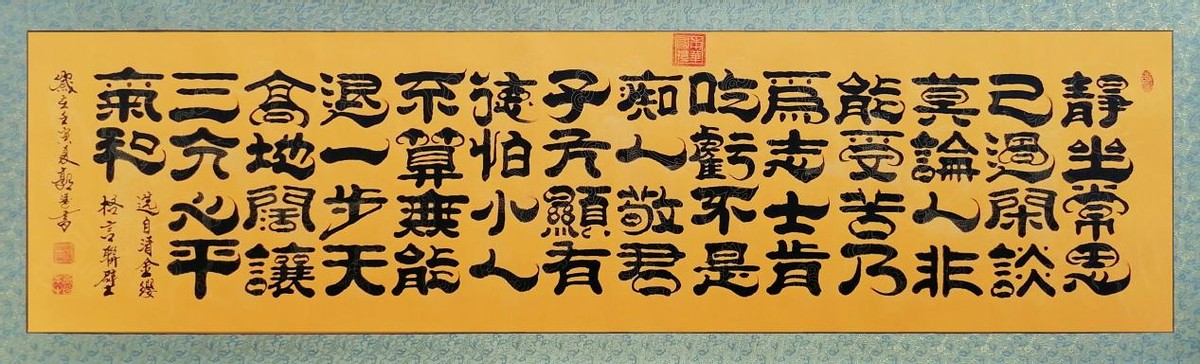 靜坐常思
己過閑談
莫論人非
能受苦乃
爲志士肯
吃虧不是
痴人敬君
子方顯有
德怕小人
不算無能
退一步天
高地闊讓
三分心平
氣和
選自清金纓
格言聯璧
壬寅夏書